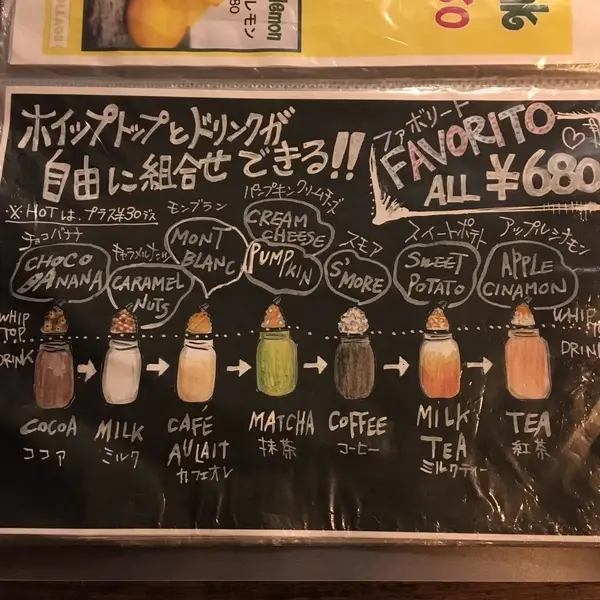 lemon
レモン
80
ホイップトップとドリンクが
自由に組合せできる!!
ファボリート
FAVORITO
ALL ¥680
※HOTは、プラス¥30デス
チョコバナナ
CHOCO
BANANA
キャラメルナッツ
CARAMEL
NUTS
モンブラン
MONT
BLANC
パンプキンクリームチーズ
CREAM
CHEESE
PUMPKIN
スモア
S'MORE
スイートポテト
SWEET
POTATO
アップルシナモン
APPLE
CINAMON
WHIP
TOP
DRINK
WHIP
TOP
DRINK
COCOA
ココア
MILK
ミルク
CAFÉ
AULAIT
カフェオレ
MATCHA
抹茶
COFFEE
コーヒー
MILK
TEA
ミルクティー
TEA
紅茶